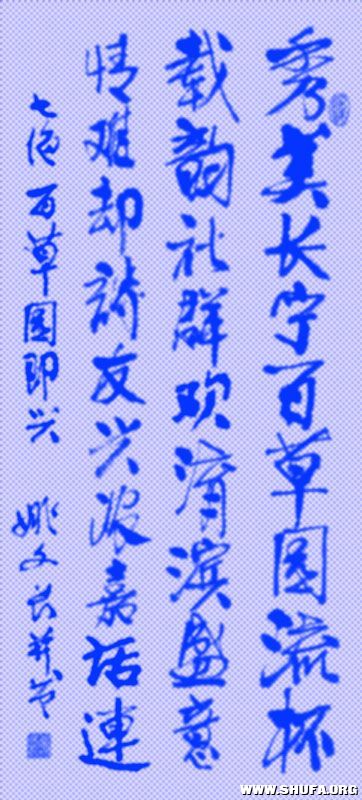 秀美长宁百草园流杯
载韵社群欢淯滨盛意
情难却詩友兴浓嘉话連
七绝 百草园即兴 姚文并书
WWW.SHUFA.ORG